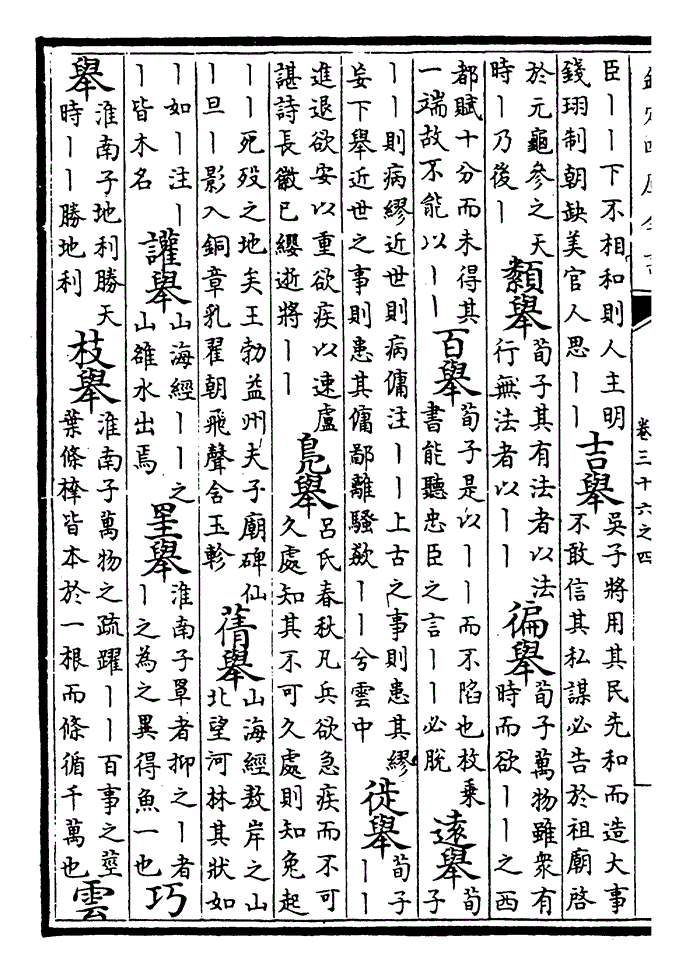 欽定四庫全書
卷三十六之四
臣丨丨下不相和則人主明
錢珝制朝缺美官人思丨丨
吉舉
吳子將用其民先和而造大事
不敢信其私謀必告於祖廟啓
於元龜參之天
時丨乃後丨
類舉
荀子其有法者以法
行無法者以丨丨
徧舉
荀子萬物雖衆有
時而欲丨丨之西
都賦十分而未得其
一端故不能以丨丨
百舉
荀子是以丨丨而不陷也枚乘
書能聽忠臣之言丨丨必脫
遠舉
荀
子
丨丨則病繆近世則病傭注丨丨上古之事則患其繆
妄下舉近世之事則患其傭鄙離騷歘丨丨兮雲中
徙舉
荀子
丨丨
進退欲安以重欲疾以速盧
諶詩長徽已纓逝將丨丨
鳧舉
呂氏春秋凡兵欲急疾而不可
久處知其不可久處則知兔起
丨丨死歿之地矣王勃益州夫子廟碑仙
丨旦丨影入銅章乳翟朝飛聲含玉軫
蒨舉
山海經敖岸之山
北望河林其狀如
丨如丨注丨
丨皆木名
讙舉
山海經丨丨之
山雒水出焉
罣舉
淮南子罩者抑之丨者
丨之為之異得魚一也
巧
舉
淮南子地利勝天
時丨丨勝地利
枝舉
淮南子萬物之疏躍丨丨百事之莖
葉條榟皆本於一根而條循千萬也
雲